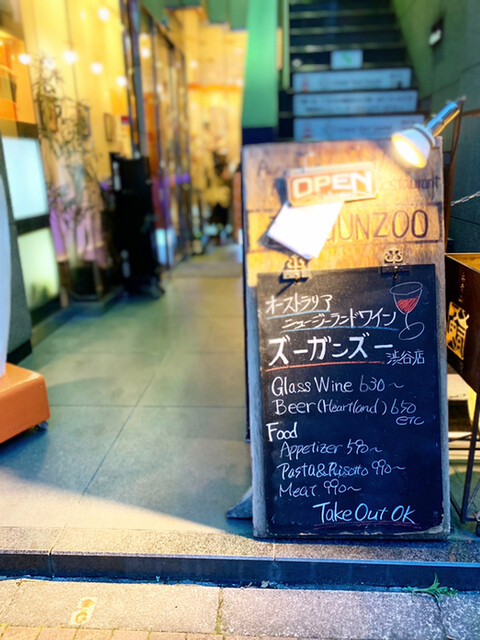 OPEN
Restaurant
UNZOO
オーストラリア
ニュージーランドワイン
ズーガンズー 渋谷店
Glass Wine 630～
Beer (Heartland) 650
etc
Food
Appetizer 590～
Pasta&Risotto 990～
Meat 990～
Take Out OK